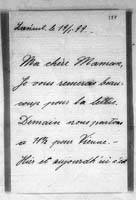 le 19/1 89.
Ma chère Maman,
Je vous remercie beau-
coup pour la lettre.
Demain nous partons
à 10½ pour Vienne. –
Hier et aujourd'hui c'est